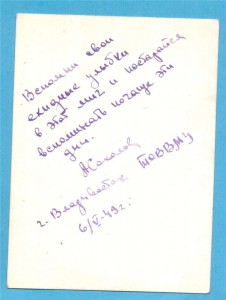 Вспомни свои
ехидные улыбки
в этот миг и постарайся
вспоминать почаще эти
дни.
Соколов
г. Владивосток ТОВВМУ
6/V-49г.